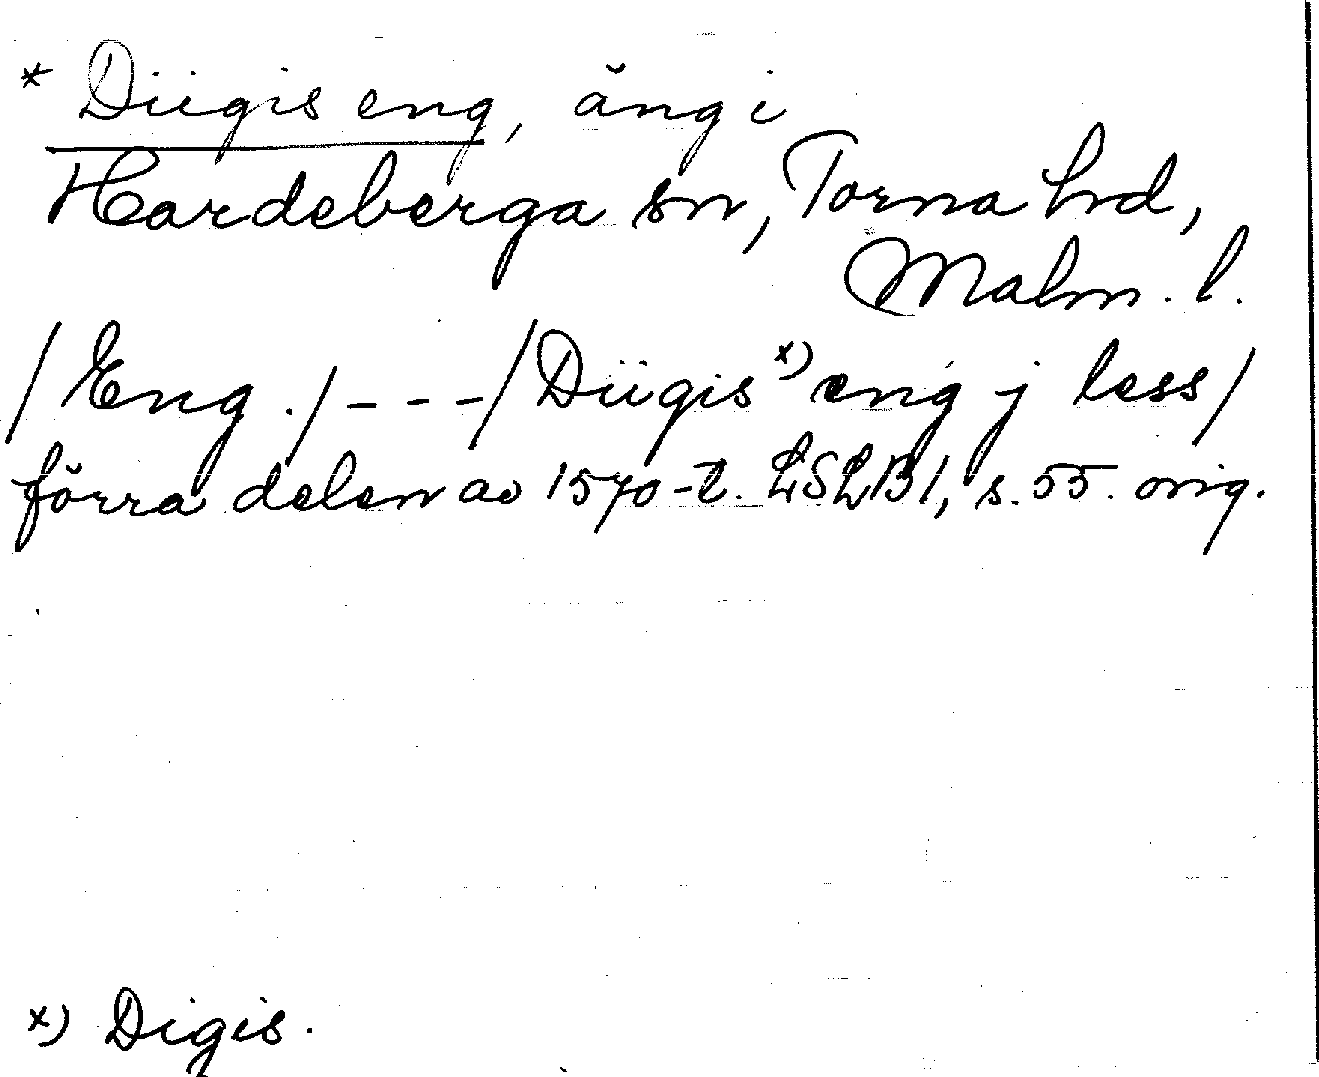 * Diigis eng, äng i
Hardeberga sn, Torna hd,
Malm. l.
/Eng./---/Diigis x) eng j less/
förra delen av 1570-t. LSLB1, s. 55. orig.
x) Digis.